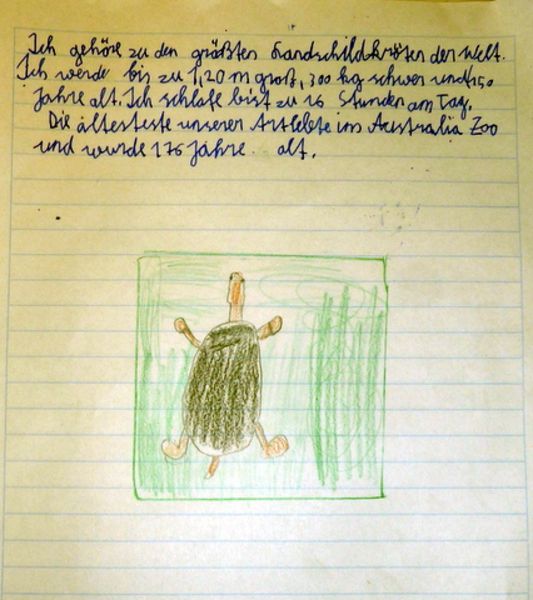 Ich gehöre zu den größten Landschildkröten der Welt.
Ich werde bis zu 1,20 m groß, 300 kg schwer und 150
Jahre alt. Ich schlafe bist zu 16 Stunden am Tag.
Die ältesteste unserer Art lebte im Australia Zoo
und wurde 176 Jahre alt.